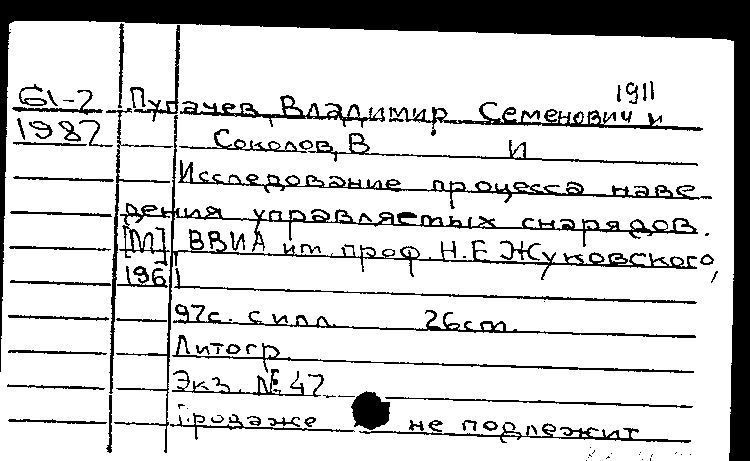 1911
61-2 Пугачев, Владимир Семенович и
1987 Соколов, В И
Исследование процесса наве-
дения управляемых снарядов.
[М] ВВИА им. проф. Н.Е Жуковского,
1961
97с. с илл. 26см.
Литогр.
Экз. № 47
Продаже не подлежит